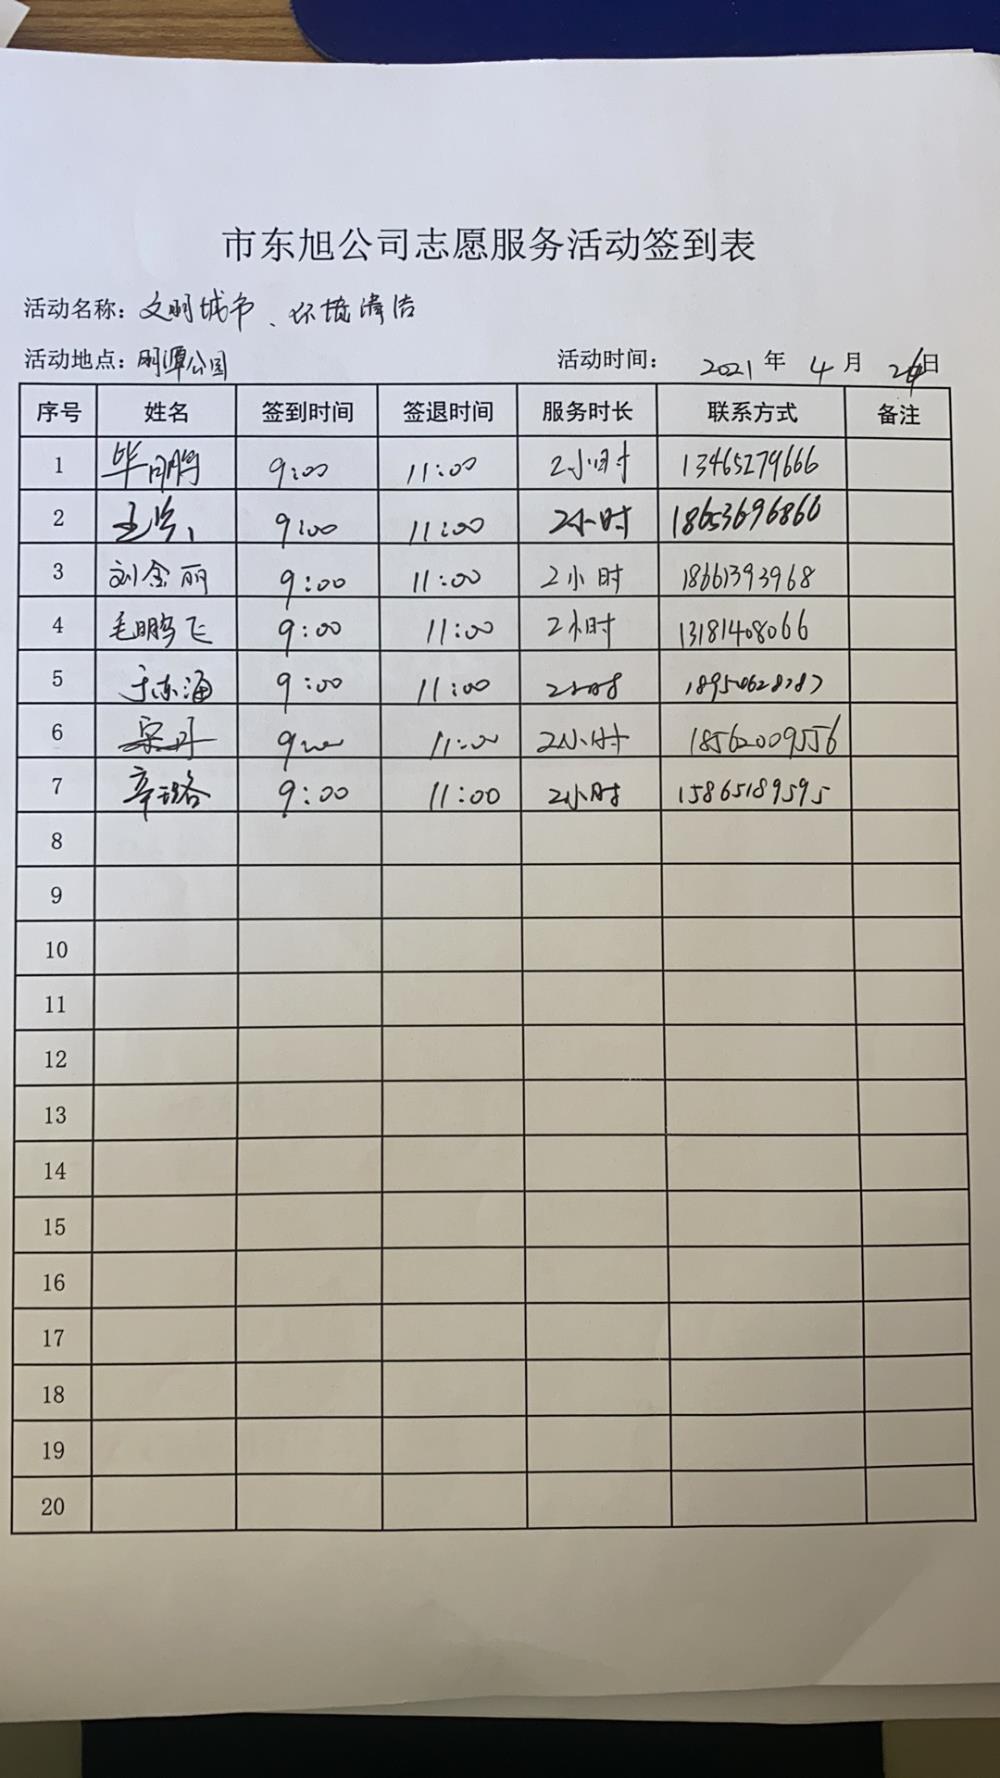 市东旭公司志愿服务活动签到表
活动名称：文明城市、环境清洁
活动地点：明潭公园 活动时间： 2021 年 4 月 日
序号 姓名 签到时间 签退时间 服务时长 联系方式 备注
1 毕 鹏 9:00 11:00 2小时 13465279666
2 9:00 11:00 2小时 18653696866
3 刘金丽 9:00 11:00 2小时 18661393968
4 毛鹏飞 9:00 11:00 2小时 13181408066
5 于东海 9:00 11:00 2小时
6 宋丹 9:00 11:00 2小时 18562009556
7 辛璐 9:00 11:00 2小时 15865189595
8
9
10
11
12
13
14
15
16
17
18
19
20